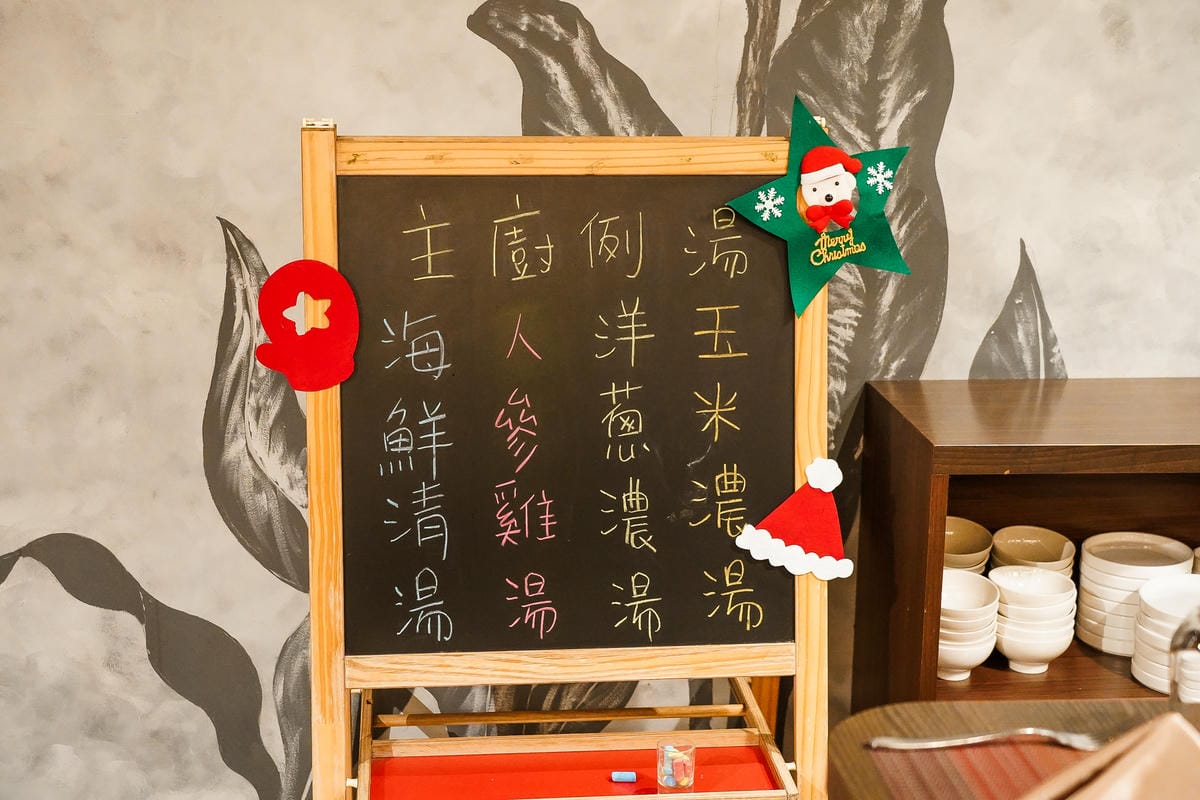 主廚例湯
海鮮清湯
人參雞湯
洋蔥濃湯
玉米濃湯
Merry
Christmas